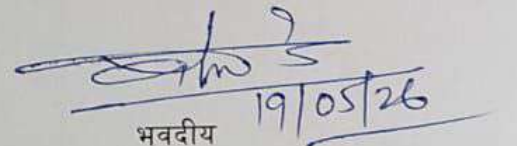 19/05/26
भवदीय